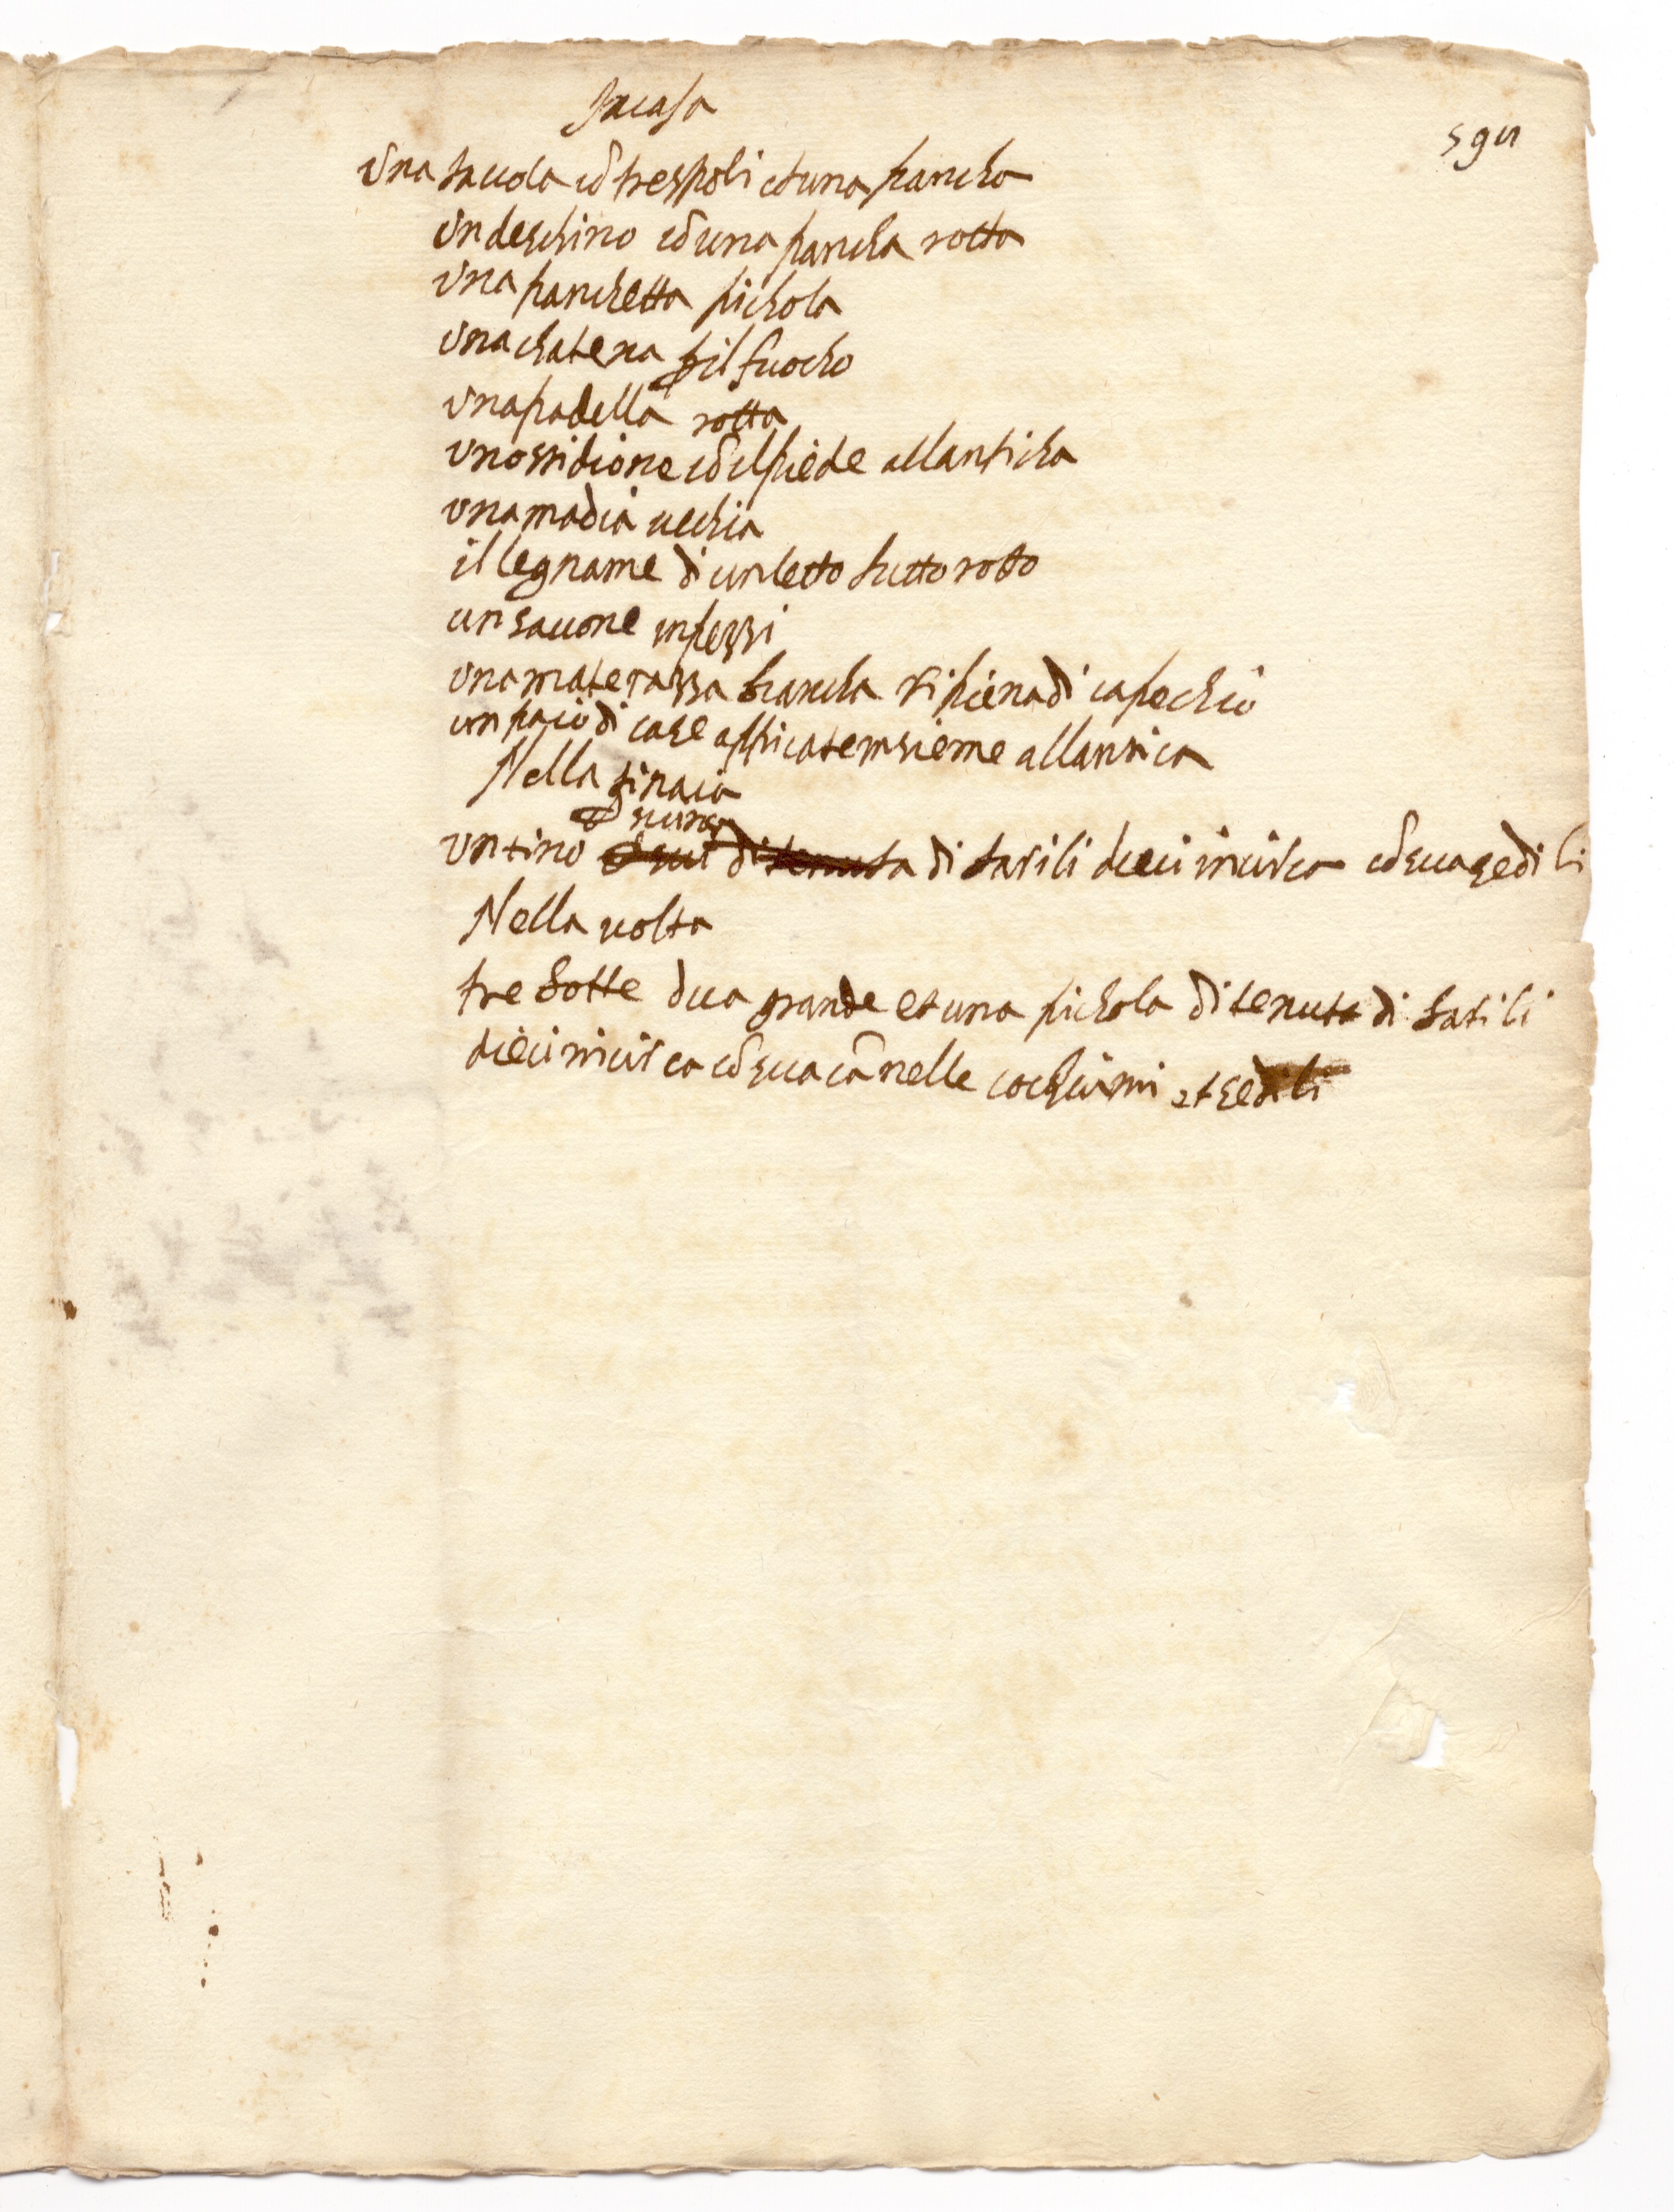 In casa
59n
Una tavola cō trespoli et una pancha
Un deschino cō una pancha rotta
Una panchetta pichola
Una chatena p il fuocho
Una padella rotta
Uno ssidione cō il piede allanticha
Una madia uechia
il legname di un letto tutto rotto
un sacone in pezzi
Una materazza biancha ripiena di capechio
un paio di case appicate insieme allantica
Nella tinaia
Un tino di barili dieci incirca cō sua sedili
Nella uolta
tre botte dua grande et una pichola di tenuta di barili
dieci incirca cō sua cānelle cochiumi et sedili